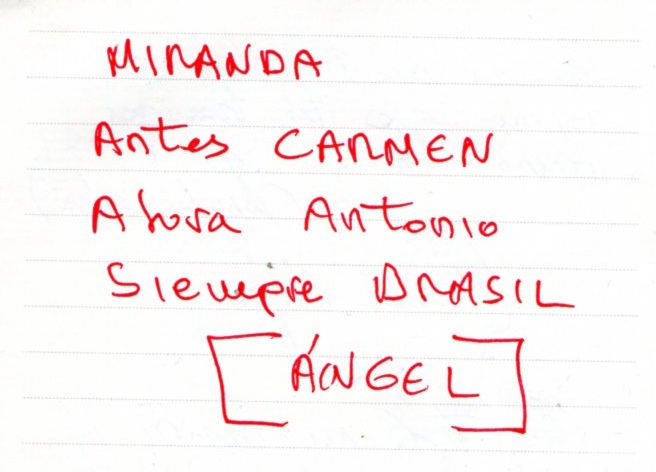 MIRANDA
Antes CARMEN
Ahora Antonio
Siempre BRASIL
[ÁNGEL]